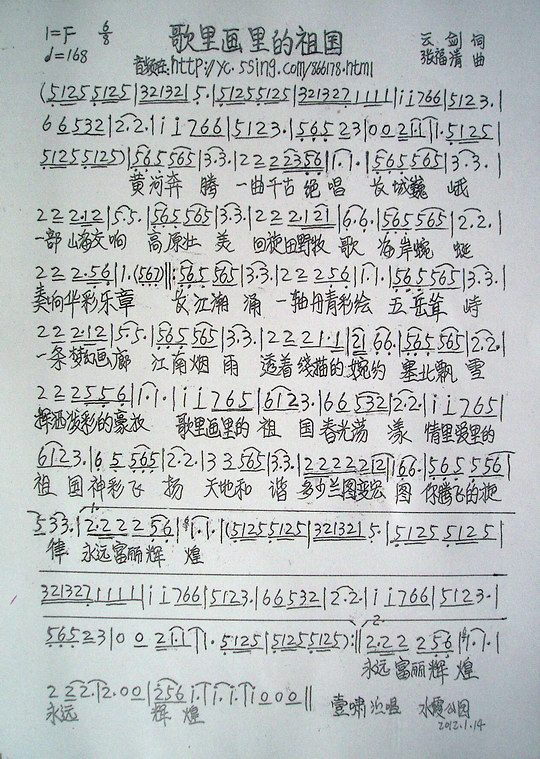 1=F 6/8 歌里画里的祖国 云剑 词
♩=168 音频在:http://yc.5sing.com/866178.html 张福清 曲
(5125 5125|321321 5.|5125 5125|321327 1111|i i 766|5123.|
66532|2.2.|i i 766|5123.|56523|002 1.1|1.5125|
5125 5125)|565 565|3.3.|222 2356|1.1.|565 565|3.3.|
黄河奔 腾 一曲千古绝唱 长城巍 峨
222.12|5.5.|565 565|3.3.|222.121|6.6.|565 565|2.2.|
一部山海交响 高原壮 美 回旋田野牧 歌 海岸蜿 蜒
222.56|1.(567)‖:565 565|3.3.|222 256|1.1.|565 565|3.3.|
奏响华彩乐章 长江潮 涌 一轴丹青彩绘 五岳耸 峙
222.12|5.5.|565 565|3.3.|2221.1|21 66.|565 565|2.2.|
一条梦幻画廊 江南烟 雨 透着线描的婉约 塞北飘 雪
222556|1.1.|i i 765|6123.|66532|2.2.|i i 765|
挥洒泼彩的豪放 歌里画里的 祖 国春光荡 漾 情里爱里的
6123.|65 565|2.2.|33565|3.3.|2222 21|66.|565 556|
祖 国神彩飞 扬 天地和 谐 多少兰图变宏 图 你腾飞的旋
533.|2.22256|1.1.|(5125 5125|321321 5.|5125 5125|
律 永远富丽辉 煌
321327 1111|i i 766|5123.|66532|2.2.|i i 766|5123.|
56523|002 1.1|1.5125|5125 5125):‖2.22 256|1.1.|
永远富丽辉 煌
2 22 2.|2.00|256 i.|i.i.|i000‖
永远 辉 煌 2012.1.14